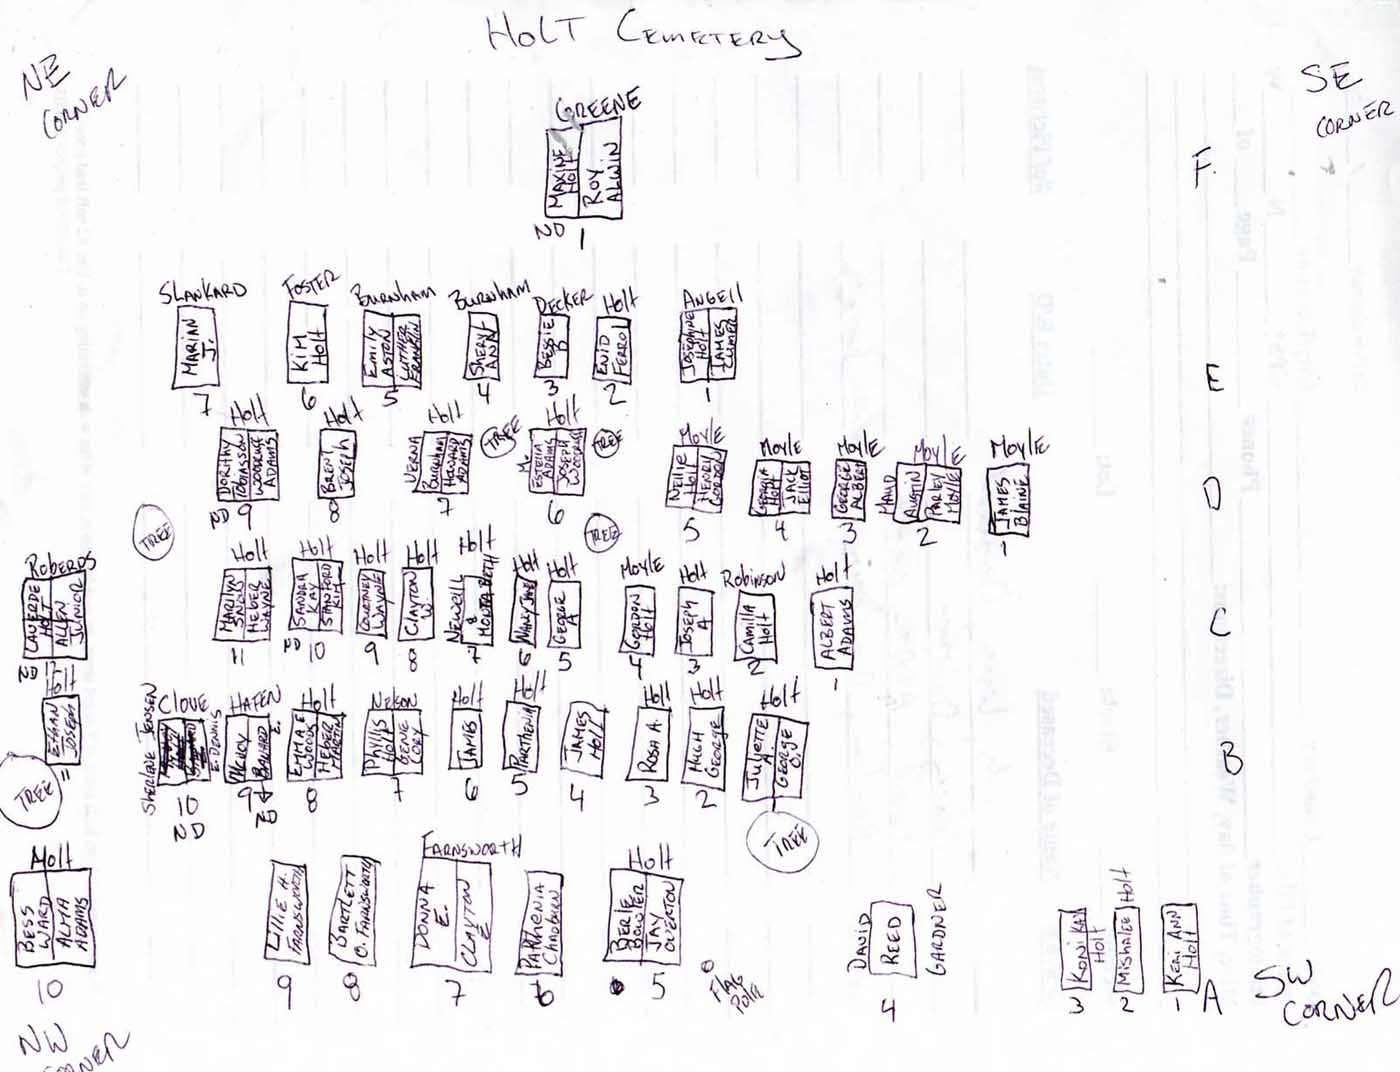 HOLT CEMETERY
NE CORNER
SE CORNER
GREENE
MAXINE Holt
ROY ALWIN
ND
1
F.
SLANKARD
MARIAN J.
7
FOSTER
KIM Holt
6
BURNHAM
Emily ASTON
LUTHER FRANKLIN
5
BURNHAM
SHERY ANN
4
DECKER
BESSIE B
3
Holt
ENID FERROL
2
ANGELL
JOSEPHINE Holt
JAMES
1
E
Holt
DORTHY
WOODRUFF ADAMS
ND
9
Holt
BRENT JOSEPH
8
Holt
VERNA BURNHAM
HOWARD ADAMS
7
TREE
Holt
M. ESTELLA ADAMS
JOSEPH WOODRUFF
6
TREE
MOYLE
Nellie Holt
HENRY GORDON
5
MOYLE
GEORGIA Holt
JACK Elliot
4
MOYLE
GEORGE ALBERT
3
MOYLE
MAUD AUSTIN
PARLEY MOYLE
2
MOYLE
JAMES BLAINE
1
D
TREE
TREE
ROBERDS
LAVERDE HOLT
ALLEN JUNIOR
ND
12
Holt
MARILYN SNOW
HEBER WAYNE
11
Holt
SANDRA KAY
STANFORD KIM
ND
10
Holt
COURTNEY WAYNE
9
Holt
CLAYTON W.
8
Holt
NEWELL &
7
Holt
NANCY JANE
6
Holt
GEORGE A
5
MOYLE
GORDON Holt
4
Holt
JOSEPH A
3
ROBINSON
CAMILLA Holt
2
Holt
ALBERT ADAMS
1
C
Holt
EVAN JOSEPH
11
TREE
CLOVE
SHERLENE JENSEN
E. DENNIS
10
ND
HAFEN
9
ND
Holt
EMMA E WOODS
HEBER MARTIN
8
NELSON
Phyllis Holt
GENE CORY
7
Holt
JAMES
6
Holt
PARTHENIA
5
JAMES Holt
4
Holt
ROSA A.
3
Holt
HUGH GEORGE
2
Holt
JULYETTE A
GEORGE O.
1
B
TREE
Holt
BESS WARD
ALMA ADAMS
10
LILLIE H. FARNSWORTH
9
BARTLETT O. FARNSWORTH
8
FARNSWORTH
DONNA E.
CLAYTON E
7
PARTHENIA CHADBURN
6
Holt
BERLE BOWLER
JAY OVERTON
5
FLAG POLE
DAVID
REED
GARDNER
4
KONI KAY Holt
3
MISHALEE Holt
2
KERI ANN Holt
1
A
SW CORNER
NW CORNER